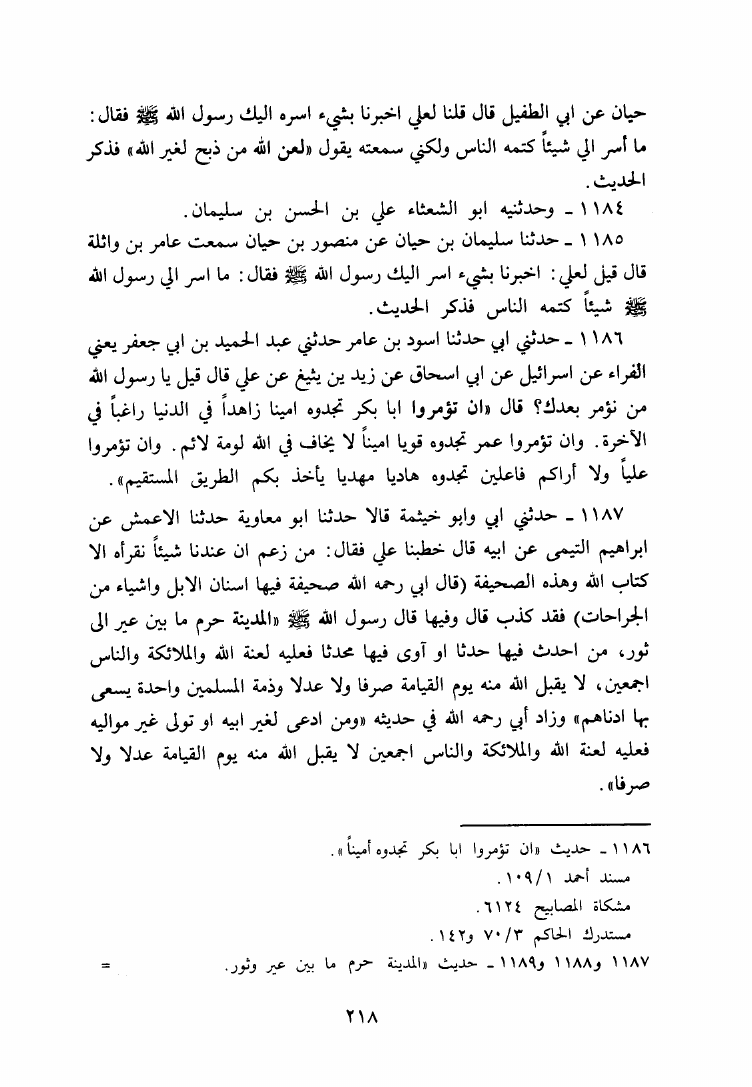 حيان عن ابي الطفيل قال قلنا لعلي اخبرنا بشيء اسره اليك رسول الله ﷺ فقال:
ما أسر الي شيئاً كتمه الناس ولكني سمعته يقول «لعن الله من ذبح لغير الله» فذكر
الحديث.
١١٨٤ ـ وحدثنيه ابو الشعثاء علي بن الحسن بن سليمان.
١١٨٥ ـ حدثنا سليمان بن حيان عن منصور بن حيان سمعت عامر بن واثلة
قال قيل لعلي: اخبرنا بشيء اسر اليك رسول الله ﷺ فقال: ما اسر الي رسول الله
ﷺ شيئاً كتمه الناس فذكر الحديث.
١١٨٦ ـ حدثني ابي حدثنا اسود بن عامر حدثني عبد الحميد بن ابي جعفر يعني
الفراء عن اسرائيل عن ابي اسحاق عن زيد ين يثيغ عن علي قال قيل يا رسول الله
من نؤمر بعدك؟ قال «ان تؤمروا ابا بكر تجدوه امينا زاهداً في الدنيا راغباً في
الآخرة. وان تؤمروا عمر تجدوه قويا اميناً لا يخاف في الله لومة لائم. وان تؤمروا
علياً ولا أراكم فاعلين تجدوه هاديا مهديا يأخذ بكم الطريق المستقيم».
١١٨٧ ـ حدثني ابي وابو خيثمة قالا حدثنا ابو معاوية حدثنا الاعمش عن
ابراهيم التيمى عن ابيه قال خطبنا علي فقال: من زعم ان عندنا شيئاً نقرأه الا
كتاب الله وهذه الصحيفة (قال ابي رحمه الله صحيفة فيها اسنان الابل واشياء من
الجراحات) فقد كذب قال وفيها قال رسول الله ﷺ «المدينة حرم ما بين عير الى
ثور، من احدث فيها حدثا او آوى فيها محدثا فعليه لعنة الله والملائكة والناس
اجمعين، لا يقبل الله منه يوم القيامة صرفا ولا عدلا وذمة المسلمين واحدة يسعى
بها ادناهم» وزاد أبي رحمه الله في حديثه «ومن ادعى لغير ابيه او تولى غير مواليه
فعليه لعنة الله والملائكة والناس اجمعين لا يقبل الله منه يوم القيامة عدلا ولا
صرفا».
١١٨٦ ـ حديث «ان تؤمروا ابا بكر تجدوه أميناً».
مسند أحمد ١٠٩/١.
مشكاة المصابيح ٦١٢٤.
مستدرك الحاكم ٧٠/٣ و١٤٢.
١١٨٧ و١١٨٨ و١١٨٩ ـ حديث «المدينة حرم ما بين عير وثور. =
٢١٨